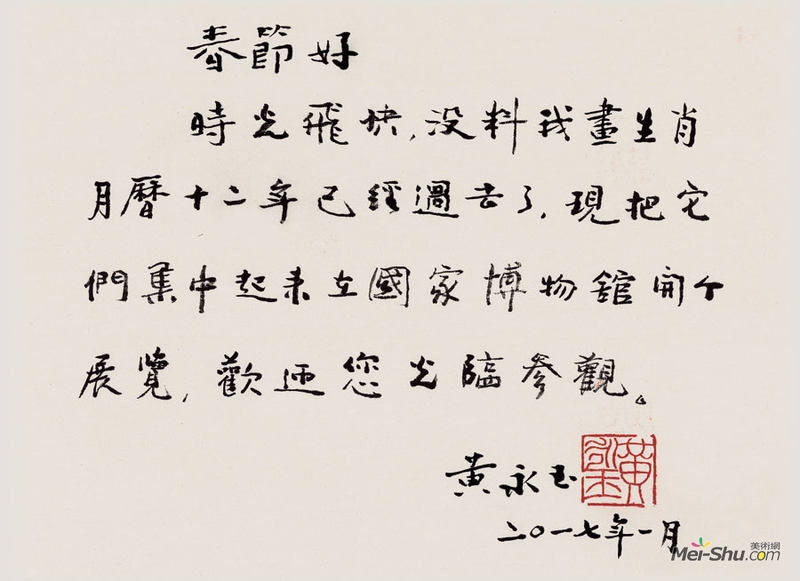 春節好
時光飛快,没料我畫生肖
月曆十二年已經過去了,現把它
們集中起来在國家博物館開个
展覽,歡迎您光臨参觀。
黄永玉
黄永玉
二〇一七年一月
美術網
Mei-Shu.com